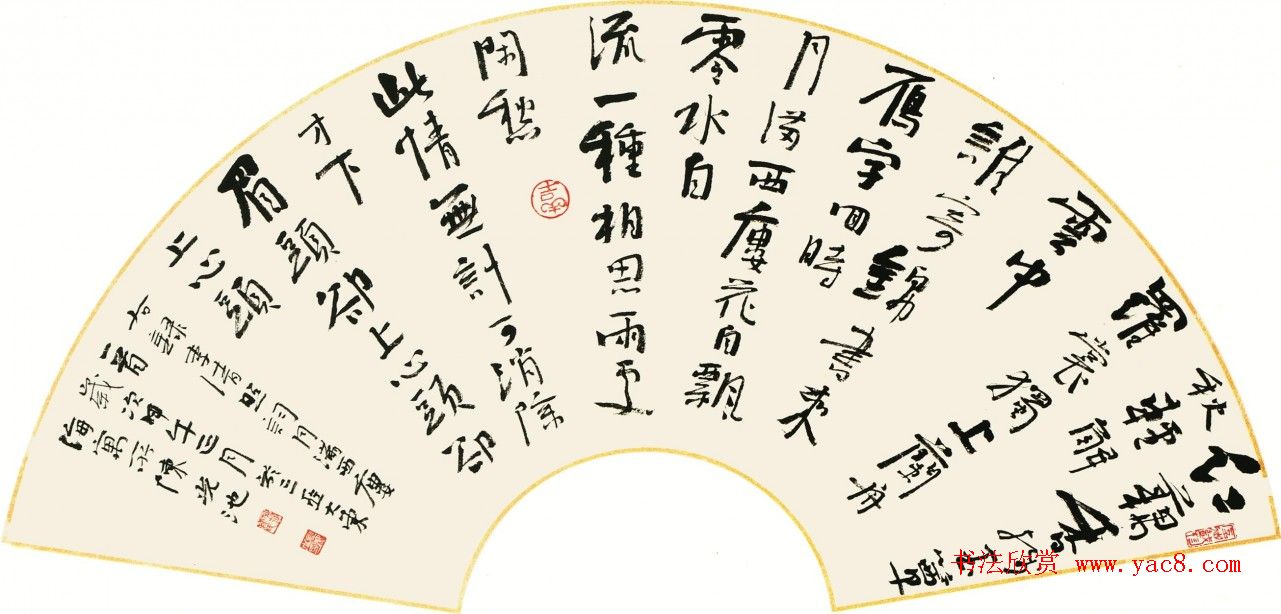 红藕香殘玉簟
秋輕解
羅裳獨上蘭舟
雲中
誰寄錦書來
雁字回時
月滿西樓花自飄
零水自
流一種相思兩處
閑愁
此情無計可消除
才下
眉頭却上心頭却
上心頭
右録李清照詞月滿西樓
一首歲次甲午三月於三亞大東
海寓所陳光池
书法欣赏 www.yac8.com